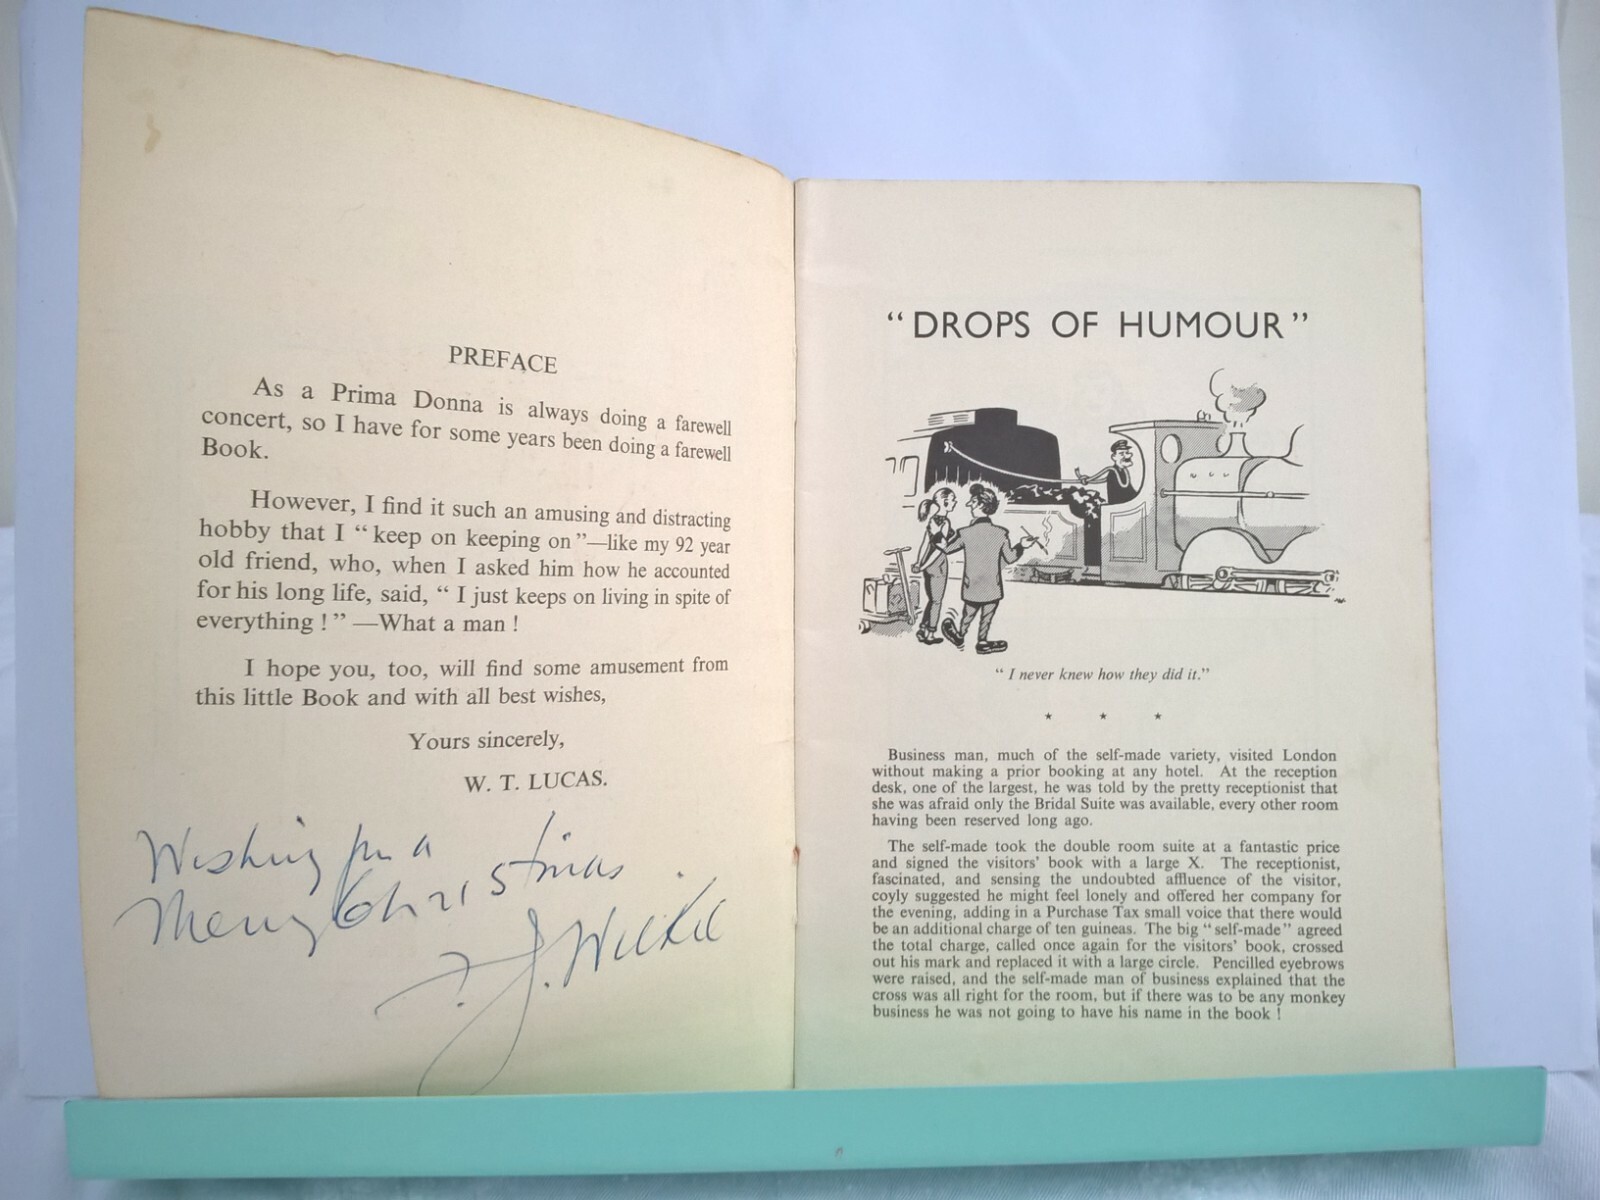 PREFACE
As a Prima Donna is always doing a farewell
concert, so I have for some years been doing a farewell
Book.
However, I find it such an amusing and distracting
hobby that I “ keep on keeping on ”—like my 92 year
old friend, who, when I asked him how he accounted
for his long life, said, “ I just keeps on living in spite of
everything ! ” —What a man !
I hope you, too, will find some amusement from
this little Book and with all best wishes,
Yours sincerely,
W. T. LUCAS.
Wishing you a
Merry Christmas
“ DROPS OF HUMOUR ”
“ I never knew how they did it.”
Business man, much of the self-made variety, visited London
without making a prior booking at any hotel. At the reception
desk, one of the largest, he was told by the pretty receptionist that
she was afraid only the Bridal Suite was available, every other room
having been reserved long ago.
The self-made took the double room suite at a fantastic price
and signed the visitors’ book with a large X. The receptionist,
fascinated, and sensing the undoubted affluence of the visitor,
coyly suggested he might feel lonely and offered her company for
the evening, adding in a Purchase Tax small voice that there would
be an additional charge of ten guineas. The big “ self-made ” agreed
the total charge, called once again for the visitors’ book, crossed
out his mark and replaced it with a large circle. Pencilled eyebrows
were raised, and the self-made man of business explained that the
cross was all right for the room, but if there was to be any monkey
business he was not going to have his name in the book !